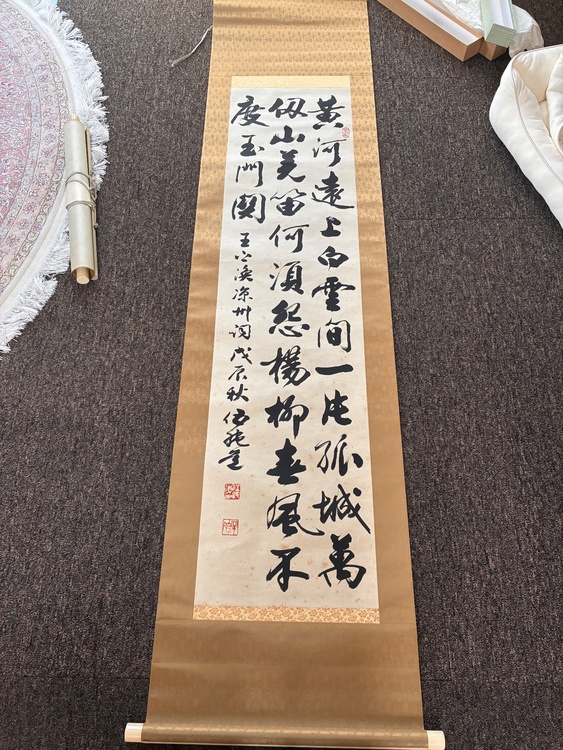 黃河遠上白雲間一片孤城萬
仭山羌笛何須怨楊柳春風不
度玉門關 王之渙涼州詞戊辰秋伍純道